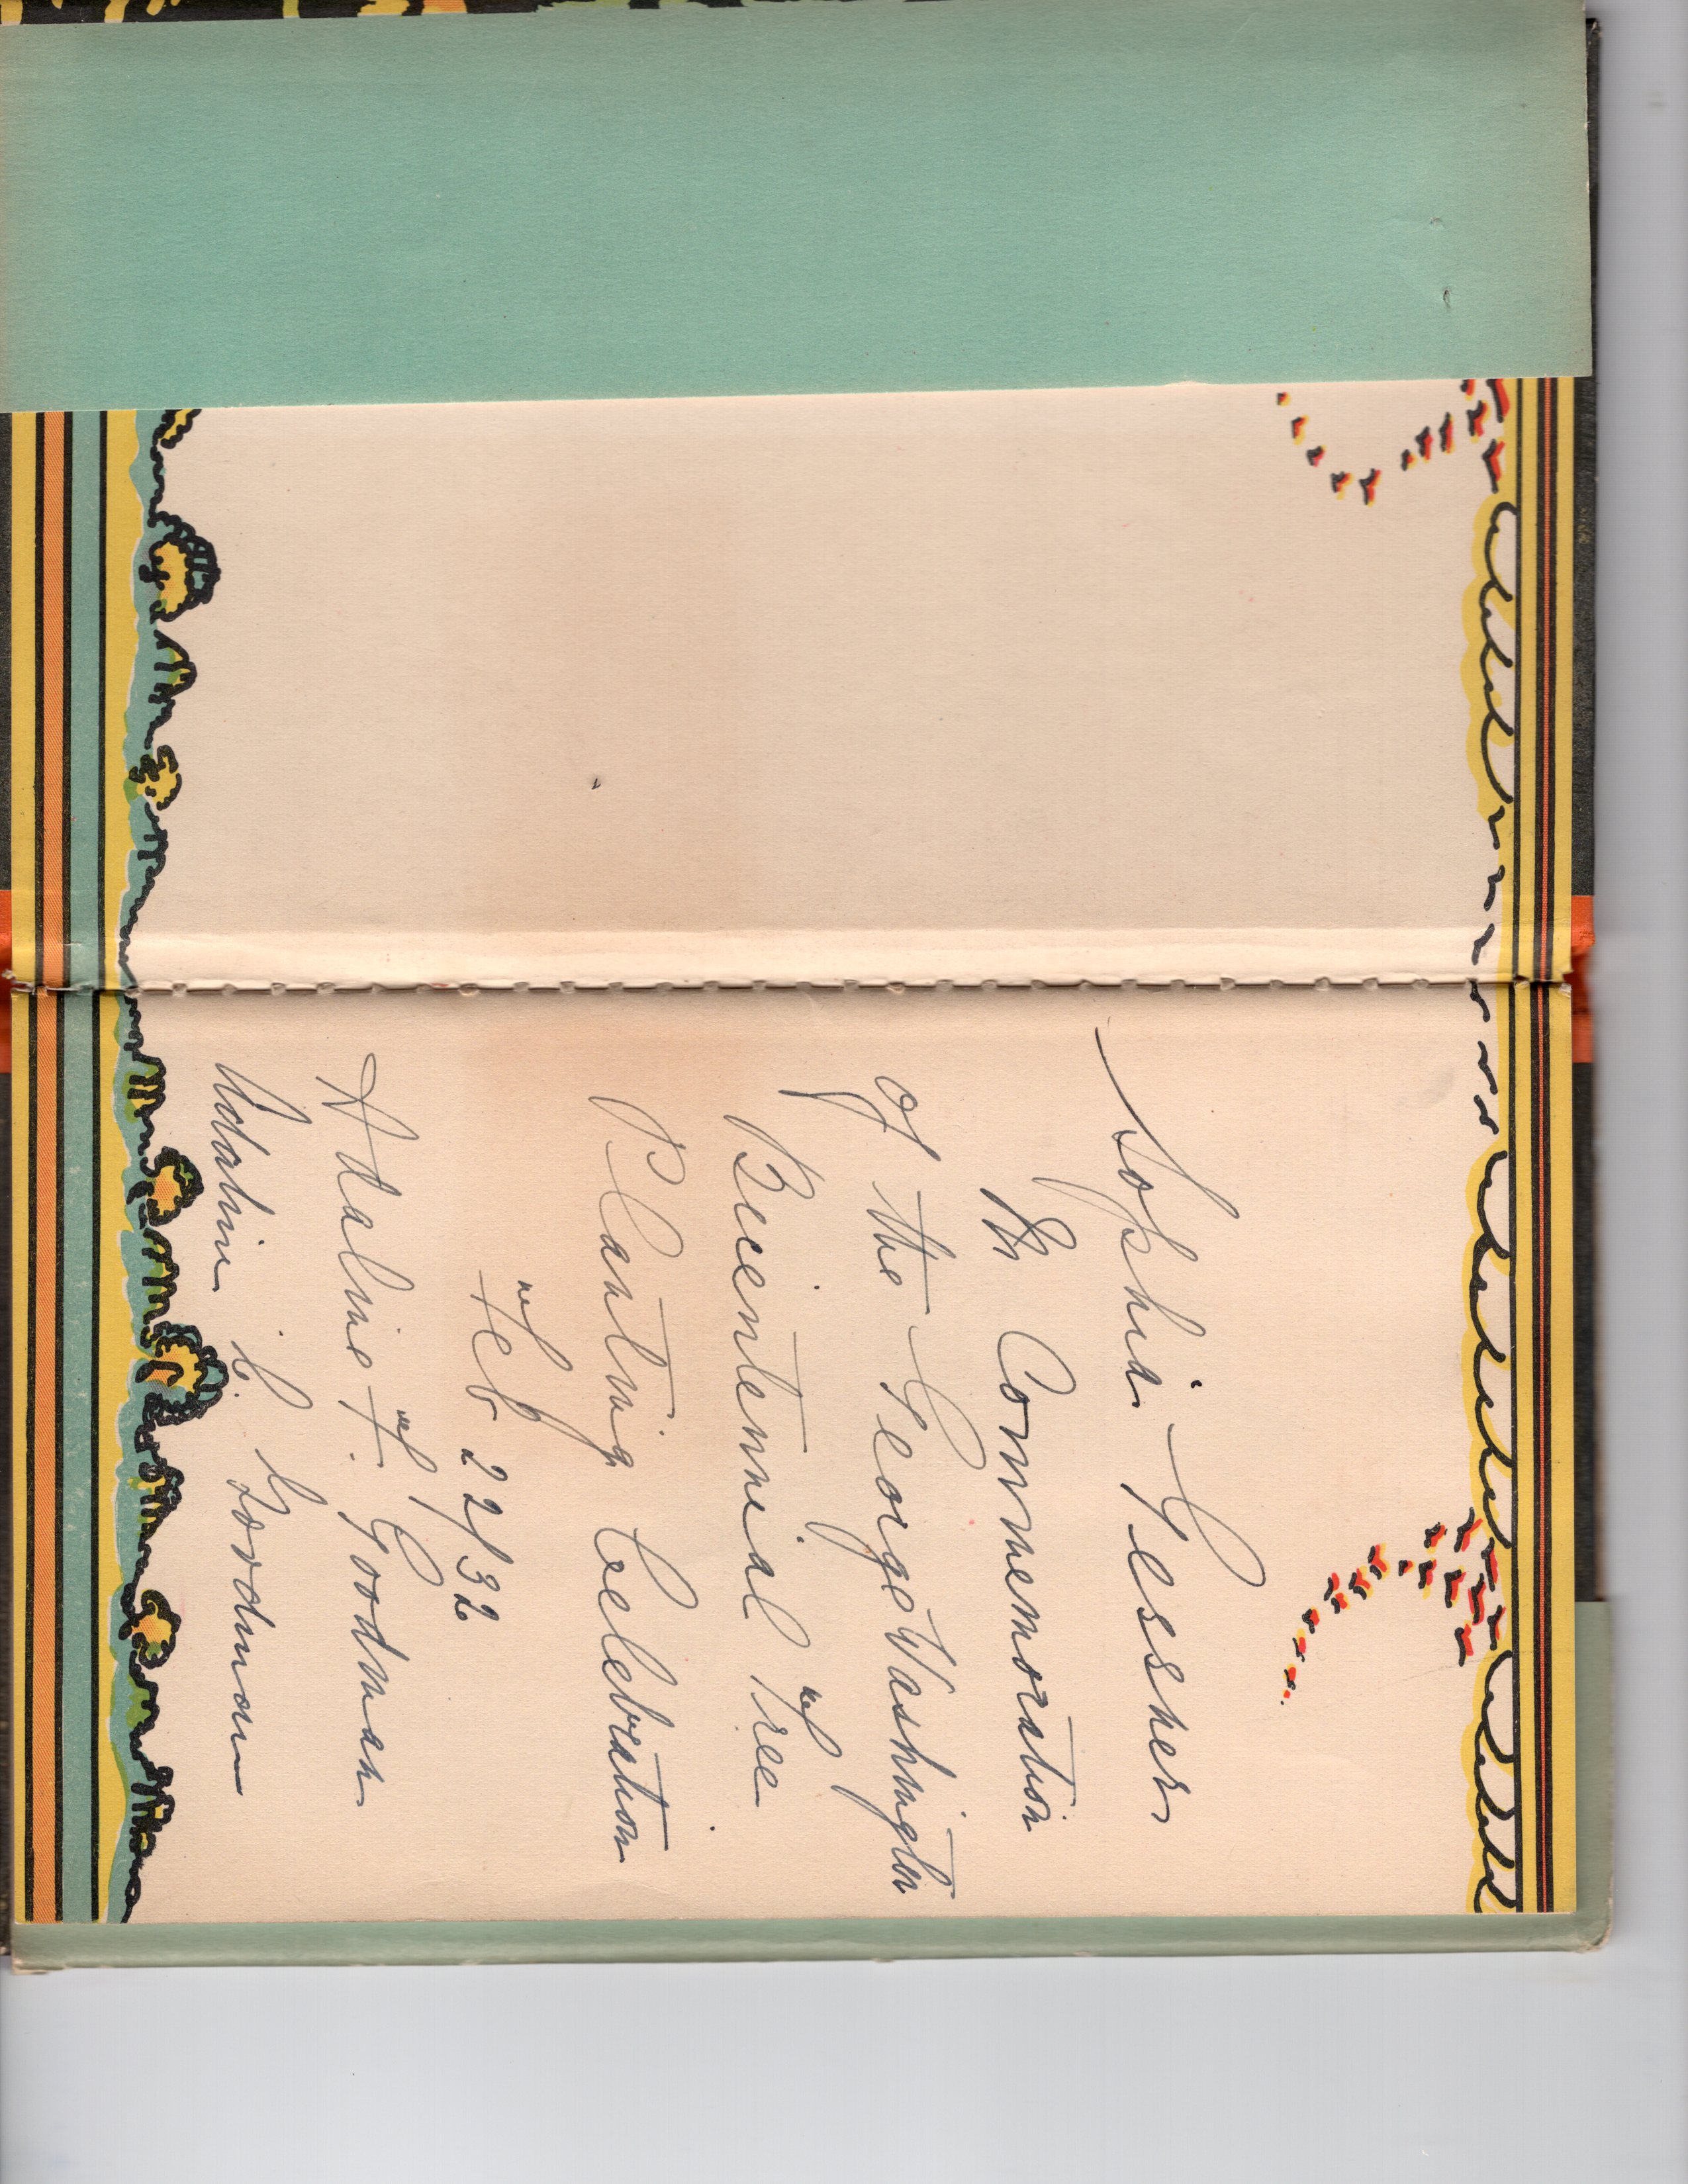 Sophia Gessner
In Commemoration
of the George Washington
Bicentennial Tree
Planting Celebration
Feb 22/32
Adaline F. Goodman
Adaline